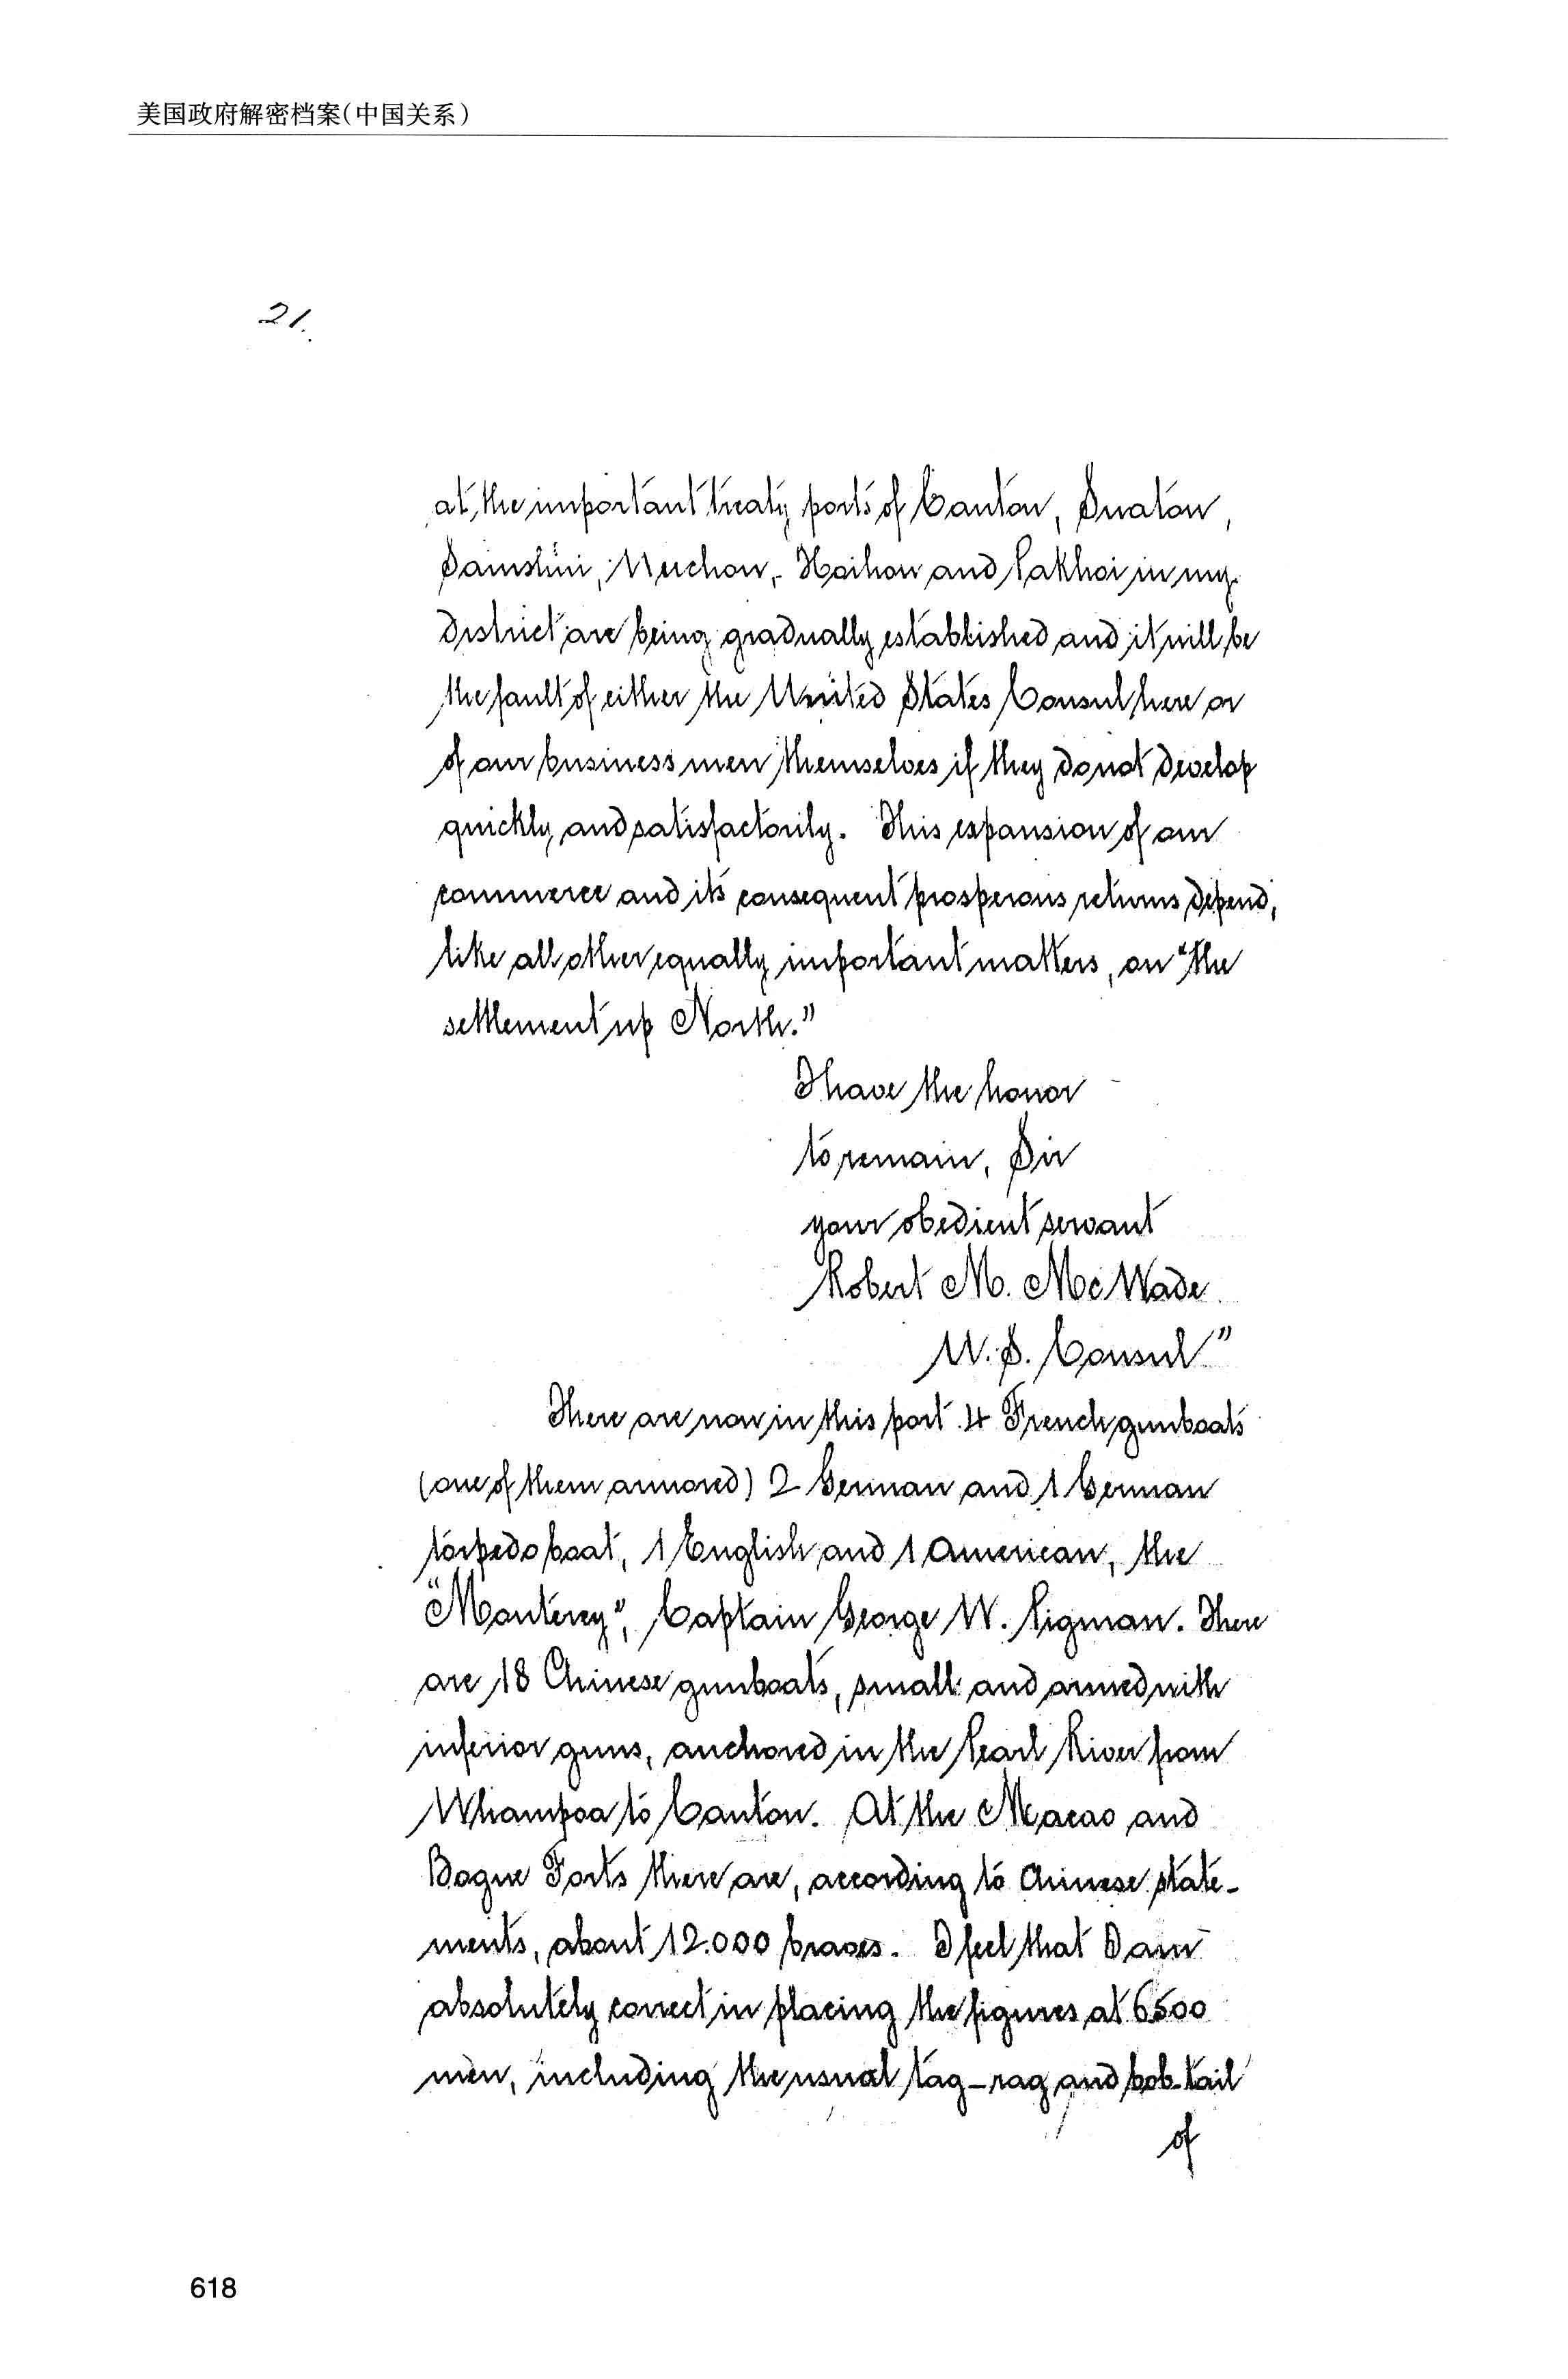 美国政府解密档案(中国关系)
21.
at the important treaty ports of Canton, Swatow,
Samshui, Wuchow, Hoihow and Pakhoi in my
district are being gradually established and it will be
the fault of either the United States Consul here or
of our business men themselves if they do not develop
quickly and satisfactorily. This expansion of our
commerce and its consequent prosperous returns depend,
like all other equally important matters, on "the
settlement up North."
I have the honor
to remain, Sir
your obedient servant
Robert M. McWade
U. S. Consul"
There are now in this port 4 French gunboats
(one of them armored) 2 German and 1 German
torpedo boat, 1 English and 1 American, the
"Monterey", Captain George W. Pigman. There
are 18 Chinese gunboats, small and armed with
inferior guns, anchored in the Pearl River from
Whampoa to Canton. At the Macao and
Bogue Forts there are, according to Chinese state-
ments, about 12.000 braves. I feel that I am
absolutely correct in placing the figures at 6500
men, including the usual tag-rag and bob-tail
of
618